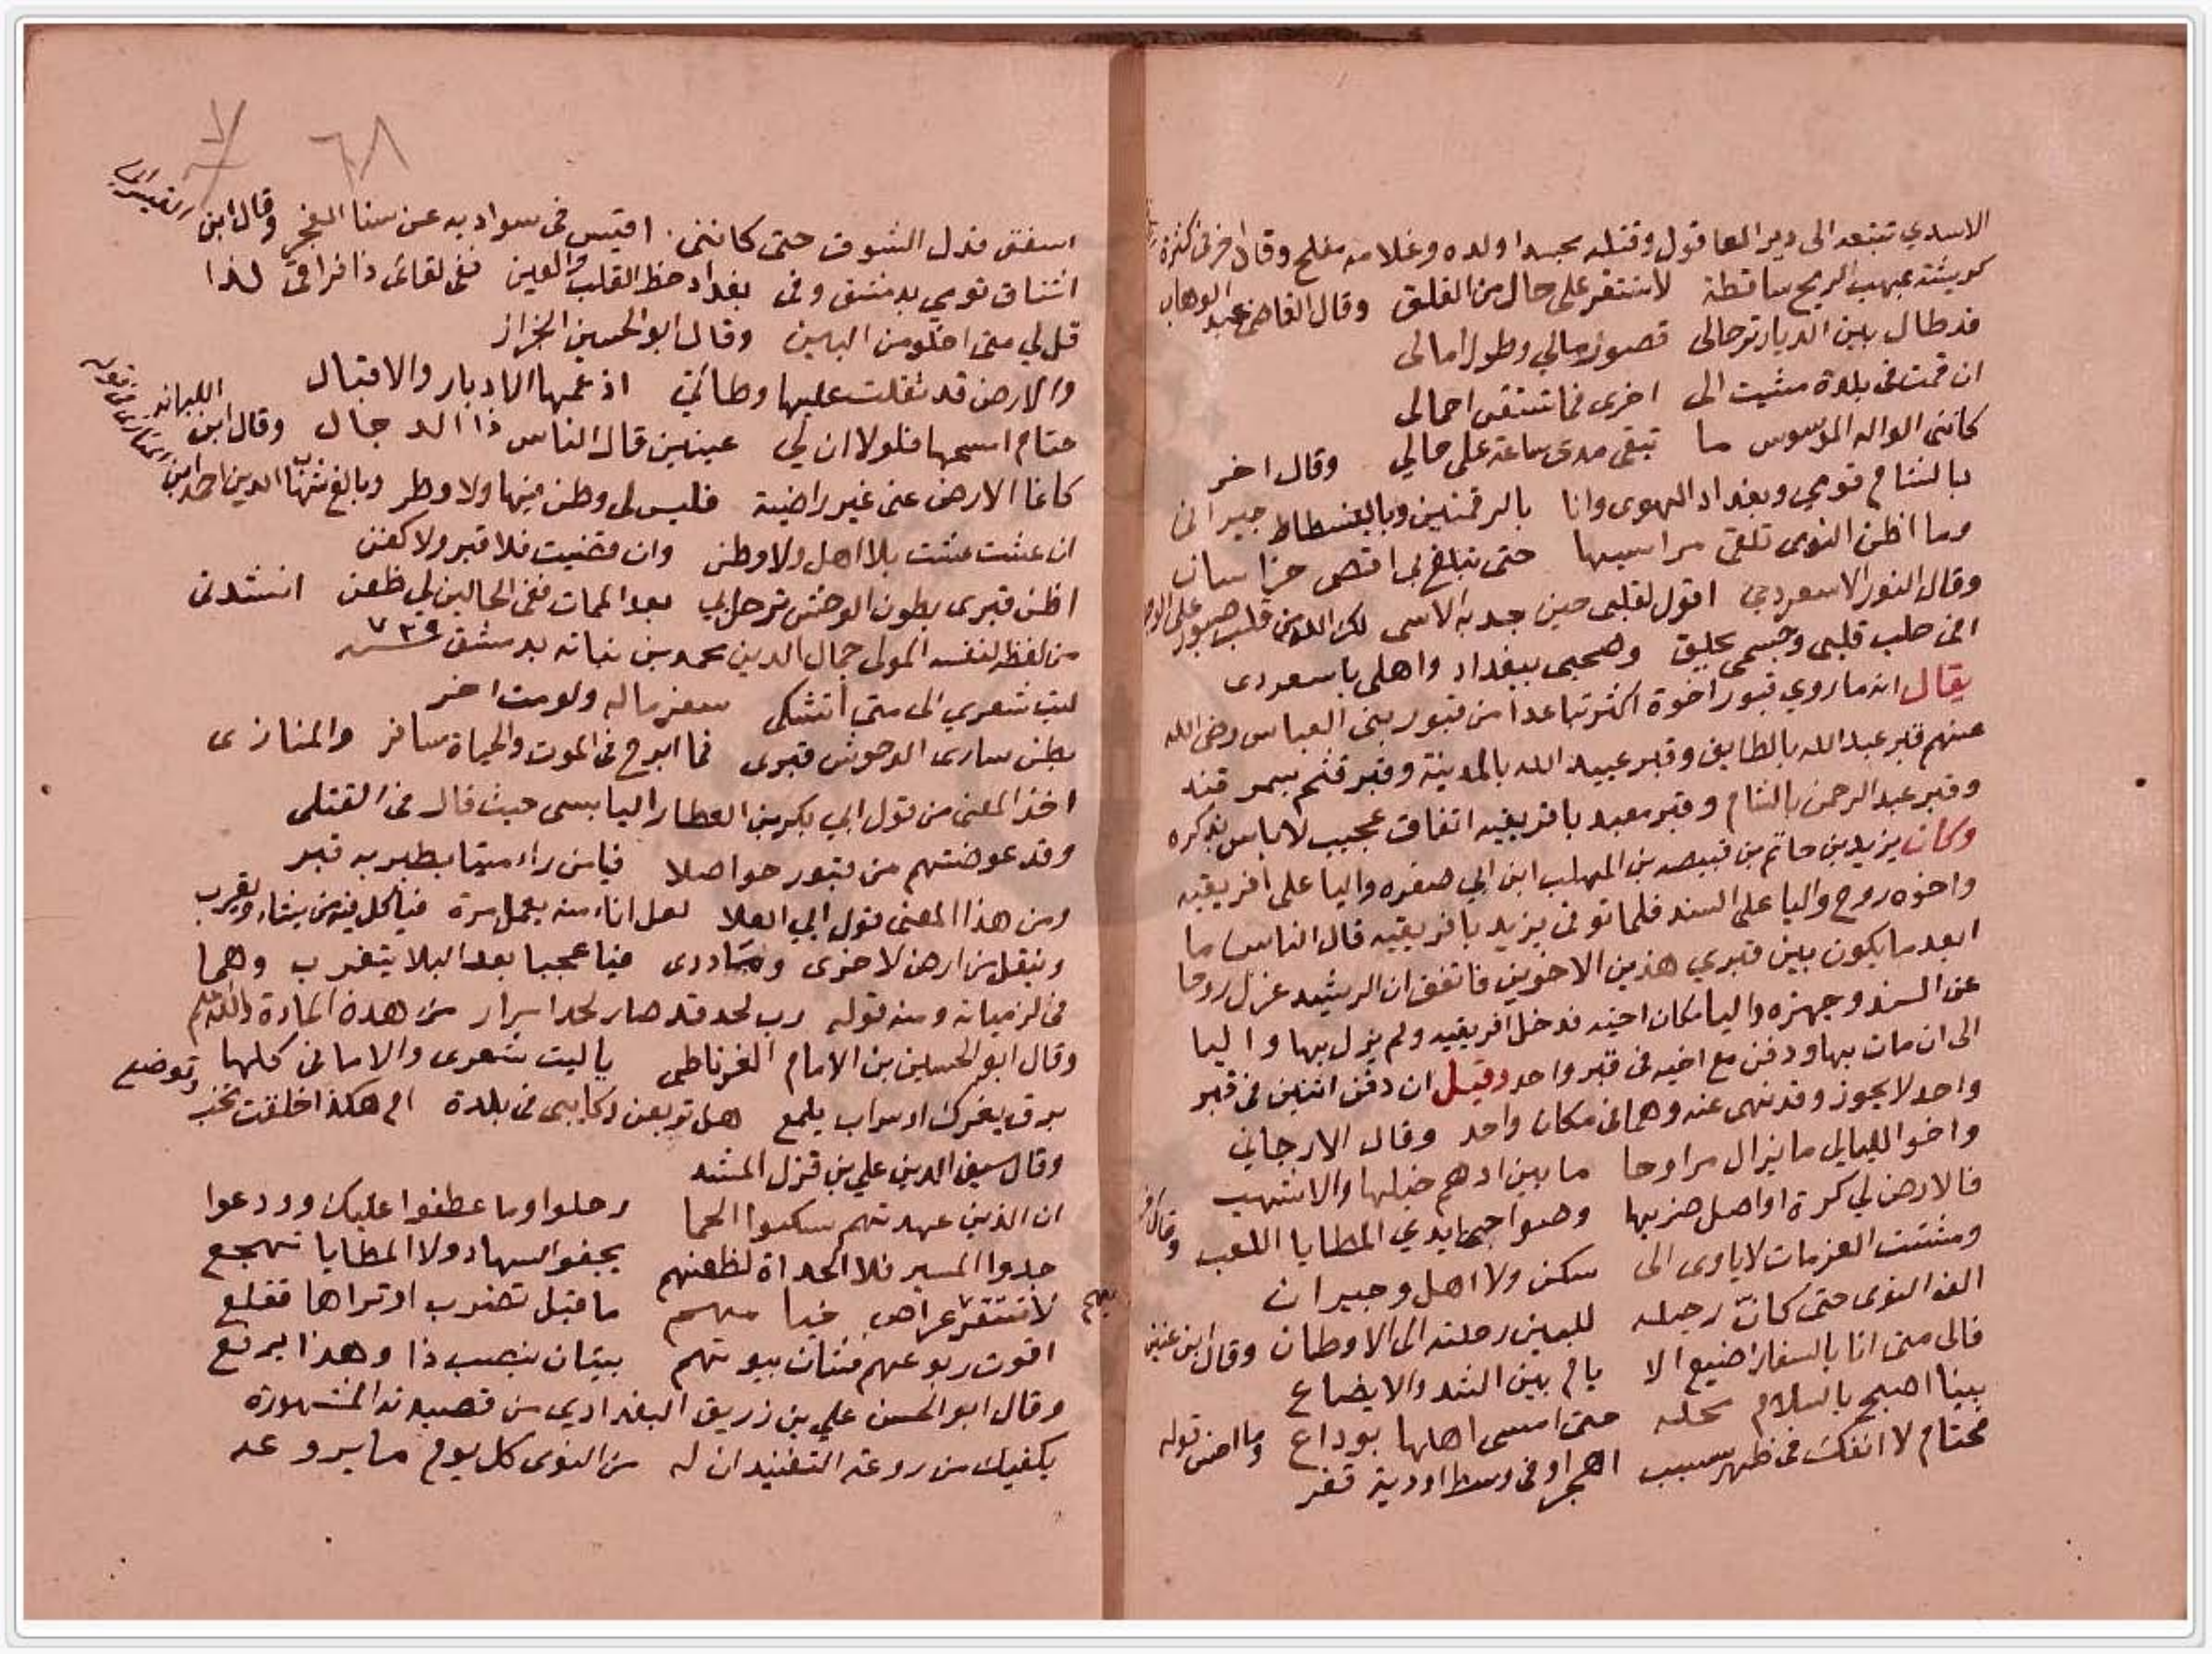 الاسدي تتبعه الى دير العاقول وقتله بجسدا ولده وغلامه مفلح وقال اخر فى كثرة
كريشة بمهب الريح ساقطة لا تستقر على حال من القلق وقال القاضى عبد الوهاب
قد طال بين الديار ترحالى قصور مالي وطول امالى
ان قمت فى بلدة مشيت الى اخرى فما تستقر احمالى
كاننى الواله الموسوس ما تبقى مدى ساعة على حالي وقال اخر
بالشام قومي وبغداد الهوى وانا بالرقمتين وبالفسطاط جيرانى
وما اظن النوى تلقى مراسيها حتى تبلغ بى اقصى خراسان
وقال النور الاسعردي اقول لقلبى حين جد به الاسى لك الله من قلب صبور على
افى حلب قلبى وجسمى بجلق وصحبى ببغداد واهلى باسعردى
يقال انه ما روي قبور اخوة اكثر تباعدا من قبور بنى العباس رضى الله
عنهم قبر عبد الله بالطايف وقبر عبيد الله بالمدينة وقبر قثم بسمرقند
وقبر عبد الرحمن بالشام وقبر معبد بافريقيه اتفاق عجيب لا باس بذكره
وكان يزيد بن حاتم بن قبيصه بن المهلب ابن ابي صفره واليا على افريقيه
واخوه روح واليا على السند فلما توفى يزيد بافريقيه قال الناس ما
ابعد ما يكون بين قبري هذين الاخوين فاتفق ان الرشيد عزل روحا
عن السند وجهزه واليا مكان اخيه فدخل افريقيه ولم يزل بها واليا
الى ان مات بها ودفن مع اخيه فى قبر واحد وقيل ان دفن اثنين فى قبر
واحد لا يجوز وقد نهى عنه وهما فى مكان واحد وقال الارجاني
واخو الليالي ما يزال مراوحا ما بين ادهم خيلها والاشهب
فالارض لي كرة اواصل ضربها وصوالجى ايدي المطايا اللعب وقال اخر
ومشتت العزمات لا ياوى الى سكن ولا اهل وجيران
الف النوى حتى كان رحيله للبين رحلته الى الاوطان وقال ابن عنين
فالى متى انا بالسفار اضيع الا يام بين الشد والايضاع
بينا اصبح بالسلام محلة حتى امسى اهلها بوداع وما احسن قوله
فحتام لا انفك فى ظهر سبسب اهجر او فى وسط اودية قفر
٦٨
اسفق قدل الشوق حتى كاننى اقتبس فى سواد به عن سنا الفجر وقال ابن القيسرانى
اشتاق قومي بدمشق وفى بغداد حظ القلب والعين ففى لقائى ذا فراقى لذا
قل لي متى اخلو من البين وقال ابو الحسين الجزار
والارض قد ثقلت عليها وطاتي اذ عمها الادبار والاقبال
حتام امسحها فلولا ان لي عينين قال الناس ذا الدجال وقال ابن اللبانه
كانما الارض عنى غير راضية فليس لى وطن فيها ولا وطر وبالغ شهاب الدين احمد ابن
ان عشت عشت بلا اهل ولا وطن وان قضيت فلا قبر ولا كفن
اظن قبرى بطون الوحش ترحل بي بعد الممات ففى الحالين لي ظعن انشدنى
من لفظه لنفسه المولى جمال الدين محمد بن نباته بدمشق سنة ٧٣٩
ليت شعري الى متى اتشكى سفر ماله ولومت اخر
بطن سارى الوحوش قبرى فما ابرح فى الموت والحياة مسافر والمنازى
اخذ المعنى من قول ابي بكر بن العطار اليابسى حيث قال فى القتلى
وقد عوضتهم من قبور حواصلا فيا من راء ميتا يطير به قبر
ومن هذا المعنى قول ابي العلا لعل اناء منه يعمل مرة فياكل فيه من يشاء ويقرب
وينقل من ارض لاخرى وما درى فيا عجبا بعد البلا يتغرب وهما
فى لزمياته ومنه قوله رب لحد قد صار لحدا مرار من هذه المادة والله اعلم
وقال ابو الحسين بن الامام الغرناطى ياليت شعرى والامانى كلها
برق يغرك او سراب يلمع هل تربعن ركايبى فى بلدة ام هكذا خلقت تخب وتوضع
وقال سيف الدين علي بن قزل المشد
ان الذين عهدتهم سكنوا الحما رحلوا وما عطفوا عليك وودعوا
جدوا المسير فلا الحداة لظعنهم يجفوا السهاد ولا المطايا تهجع
لا تستقر عراص خيامهم ما قبل تضرب اوتراها فقلع
اقوت ربوعهم فتان بيوتهم بيتان ينصب ذا وهذا يرفع
وقال ابو الحسن علي بن زريق البغدادي من قصيدته المشهورة
يكفيك من روعة التفنيد ان له من النوى كل يوم ما يروعه